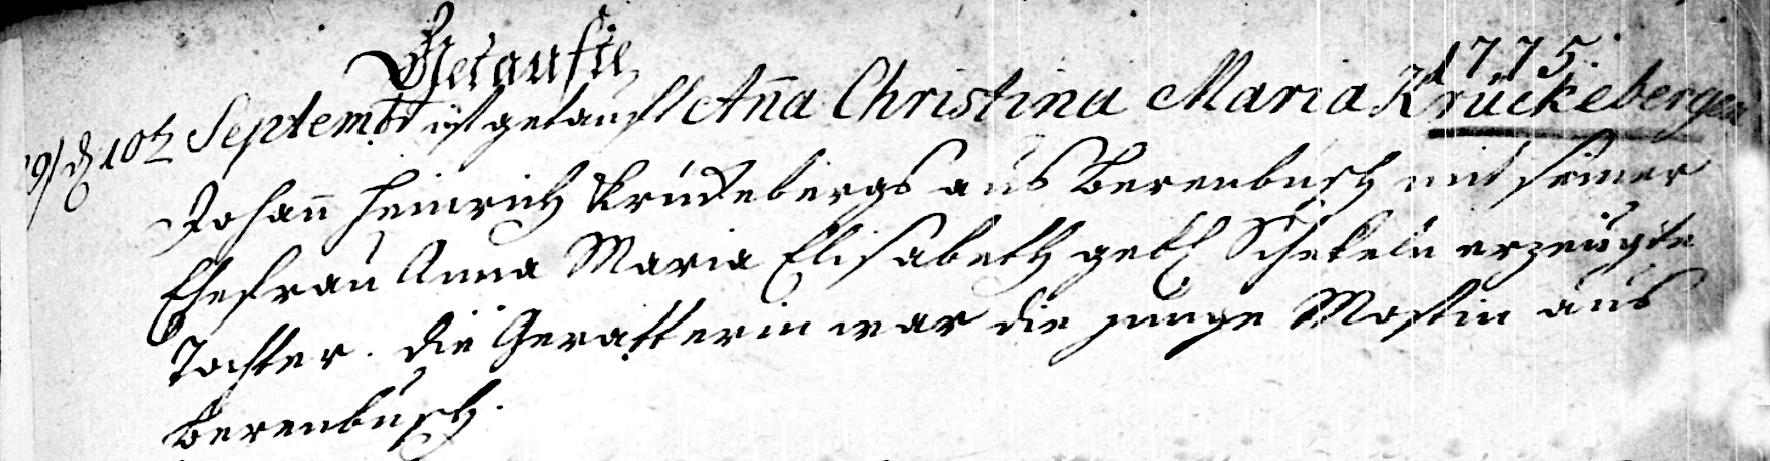 Getaufte
1775.
19/ d 10t Septembr ist getauft Aña Christina Maria Krückebergen
Johañ Heinrich Krückebergs aus Berenbusch mit seiner
Ehefrau Anna Maria Elisabeth geb. erzeugte
Tochter. die Gevatterin war die junge aus
Berenbusch.